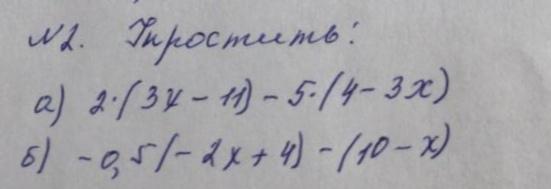 №2. Упростить:
а) 2·(3x - 11) - 5·(4 - 3x)
б) - 0,5(- 2x + 4) - (10 - x)